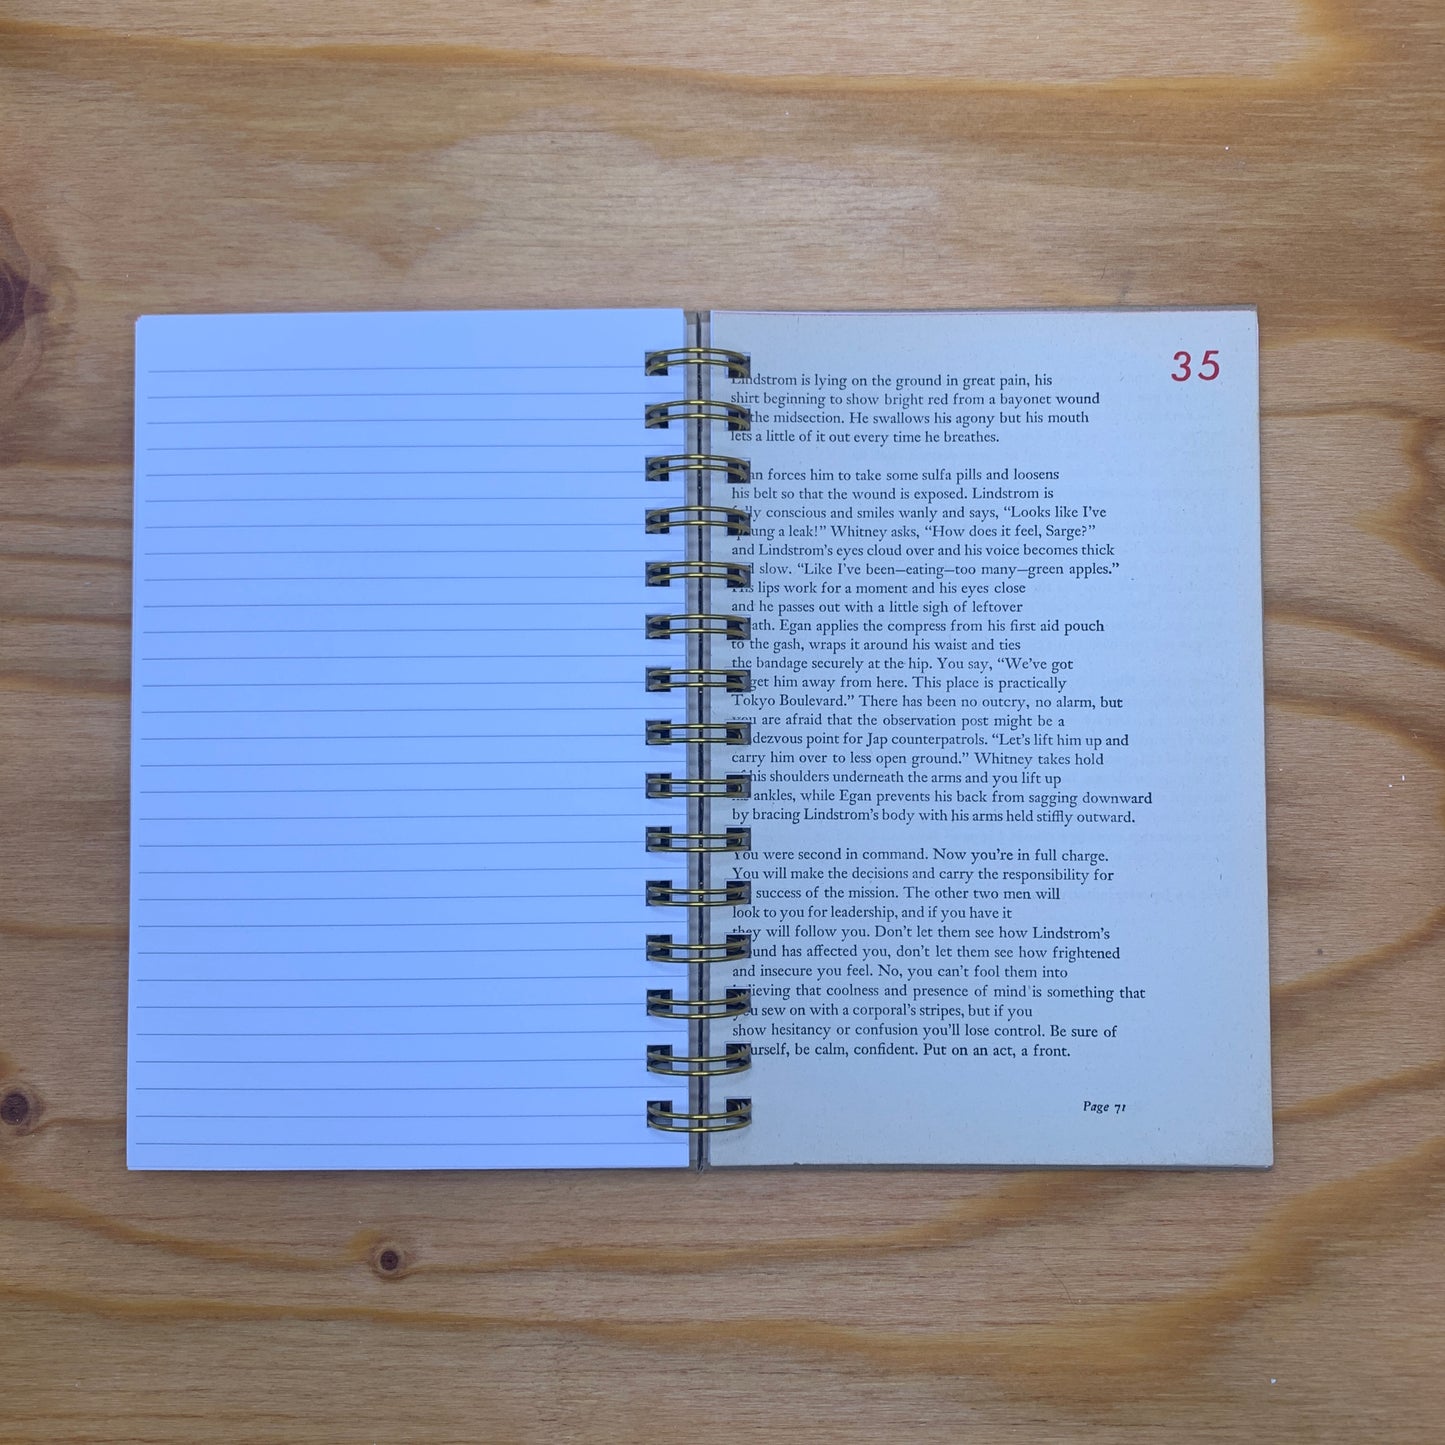 35
Lindstrom is lying on the ground in great pain, his
shirt beginning to show bright red from a bayonet wound
the midsection. He swallows his agony but his mouth
lets a little of it out every time he breathes.
forces him to take some sulfa pills and loosens
his belt so that the wound is exposed. Lindstrom is
fully conscious and smiles wanly and says, “Looks like I’ve
a leak!” Whitney asks, “How does it feel, Sarge?”
and Lindstrom’s eyes cloud over and his voice becomes thick
slow. “Like I’ve been—eating—too many—green apples.”
His lips work for a moment and his eyes close
and he passes out with a little sigh of leftover
Egan applies the compress from his first aid pouch
to the gash, wraps it around his waist and ties
the bandage securely at the hip. You say, “We’ve got
get him away from here. This place is practically
Tokyo Boulevard.” There has been no outcry, no alarm, but
you are afraid that the observation post might be a
rendezvous point for Jap counterpatrols. “Let’s lift him up and
carry him over to less open ground.” Whitney takes hold
of his shoulders underneath the arms and you lift up
ankles, while Egan prevents his back from sagging downward
by bracing Lindstrom’s body with his arms held stiffly outward.
You were second in command. Now you’re in full charge.
You will make the decisions and carry the responsibility for
success of the mission. The other two men will
look to you for leadership, and if you have it
they will follow you. Don’t let them see how Lindstrom’s
wound has affected you, don’t let them see how frightened
and insecure you feel. No, you can’t fool them into
believing that coolness and presence of mind is something that
you sew on with a corporal’s stripes, but if you
show hesitancy or confusion you’ll lose control. Be sure of
yourself, be calm, confident. Put on an act, a front.
Page 71